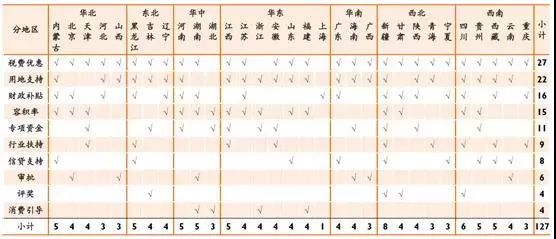 分地区 华北 东北 华中 华东 华南 西北 西南 小计
内蒙古 北京 天津 河北 山西 黑龙江 吉林 辽宁 河南 湖南 湖北 江西 江苏 浙江 安徽 山东 福建 上海 广东 海南 广西 新疆 甘肃 陕西 青海 宁夏 四川 贵州 西藏 云南 重庆
税费优惠 27
用地支持 22
财政补贴 16
容积率 15
专项资金 11
行业扶持 9
信贷支持 8
审批 6
评奖 4
消费引导 4
小计 5 4 4 3 3 5 4 4 5 5 3 5 4 4 4 4 4 1 4 4 3 8 4 4 3 3 6 5 5 4 3 127